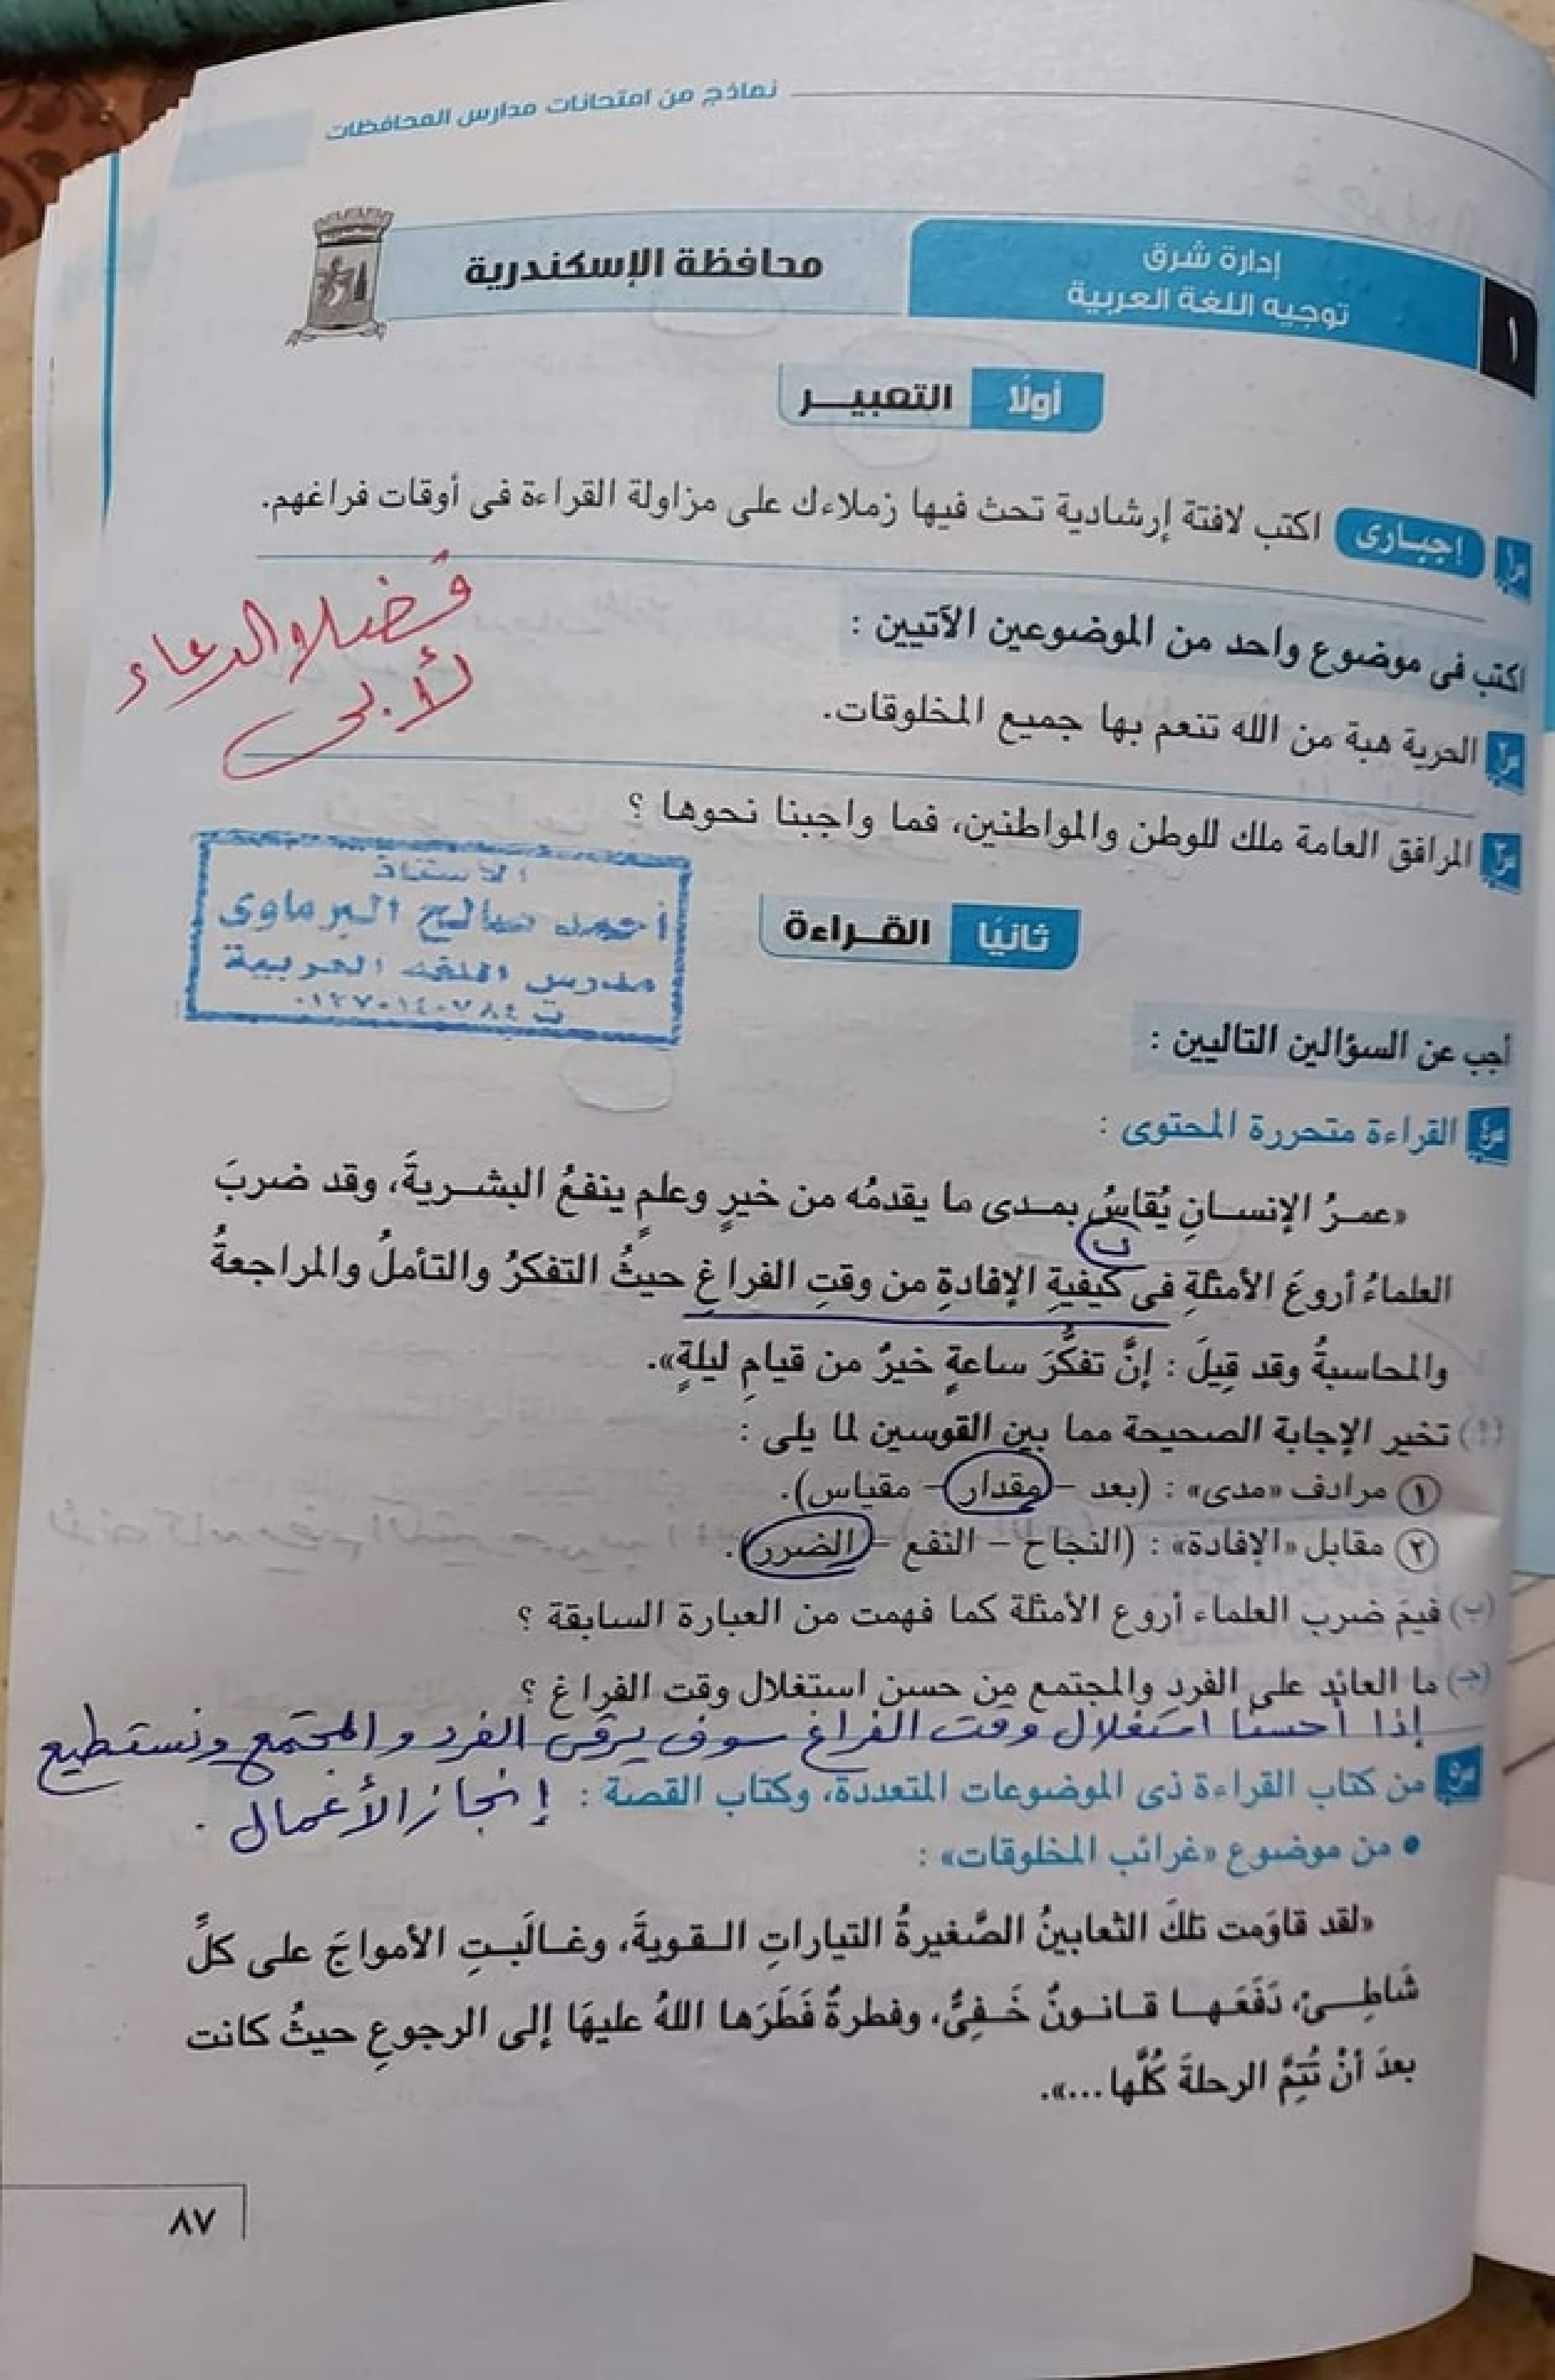 نماذج من امتحانات مدارس المحافظات
١
إدارة شرق
توجيه اللغة العربية
محافظة الإسكندرية
أولًا التعبير
س١ إجبارى اكتب لافتة إرشادية تحث فيها زملاءك على مزاولة القراءة فى أوقات فراغهم.
اكتب فى موضوع واحد من الموضوعين الآتيين :
فضلا الدعاء
لأبى
س٢ الحرية هبة من الله تنعم بها جميع المخلوقات.
س٣ المرافق العامة ملك للوطن والمواطنين، فما واجبنا نحوها ؟
الاستاذ
أحمد صالح البرماوى
مدرس اللغة العربية
ثانيًا القراءة
أجب عن السؤالين التاليين :
س٤ القراءة متحررة المحتوى :
«عمرُ الإنسانِ يُقاسُ بمدى ما يقدمُه من خيرٍ وعلمٍ ينفعُ البشريةَ، وقد ضربَ
ب
العلماءُ أروعَ الأمثلةِ فى كيفيةِ الإفادةِ من وقتِ الفراغِ حيثُ التفكرُ والتأملُ والمراجعةُ
والمحاسبةُ وقد قِيلَ : إنَّ تفكُّرَ ساعةٍ خيرٌ من قيامِ ليلةٍ».
(أ) تخير الإجابة الصحيحة مما بين القوسين لما يلى :
١ مرادف «مدى» : (بعد - مقدار - مقياس).
٢ مقابل «الإفادة» : (النجاح - النفع - الضرر).
(ب) فيمَ ضرب العلماء أروع الأمثلة كما فهمت من العبارة السابقة ؟
(ج) ما العائد على الفرد والمجتمع من حسن استغلال وقت الفراغ ؟
إذا أحسنا استغلال وقت الفراغ سوف يرقى الفرد والمجتمع ونستطيع
إنجاز الأعمال .
س٥ من كتاب القراءة ذى الموضوعات المتعددة، وكتاب القصة :
• من موضوع «غرائب المخلوقات» :
«لقد قاوَمت تلكَ الثعابينُ الصَّغيرةُ التياراتِ القويةَ، وغالَبتِ الأمواجَ على كلِّ
شَاطِئٍ، دَفَعَها قانونٌ خَفِىٌّ، وفطرةٌ فَطَرَها اللهُ عليهَا إلى الرجوعِ حيثُ كانت
بعدَ أنْ تُتِمَّ الرحلةَ كُلَّها...».
٨٧